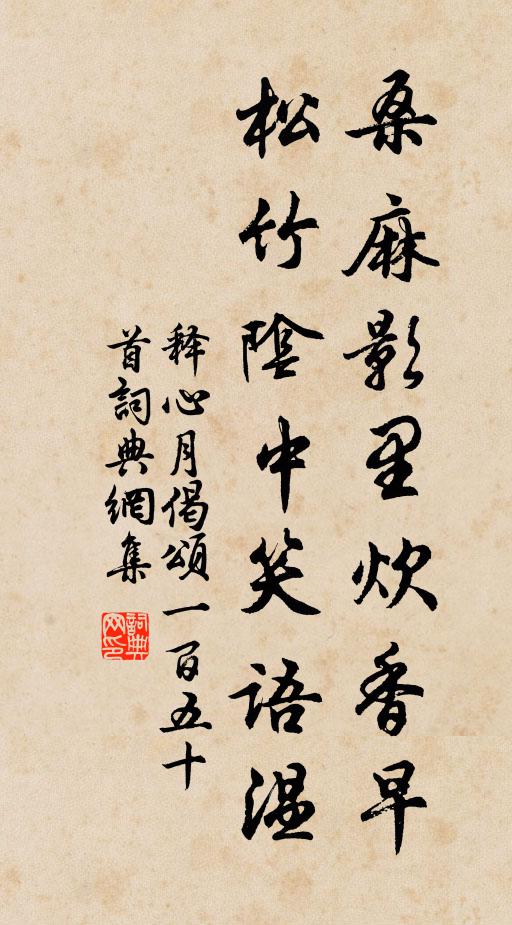 桑麻影里炊香早
松竹陰中笑語温
释心月偈頌一百五十
首詞典網集
詞典网印